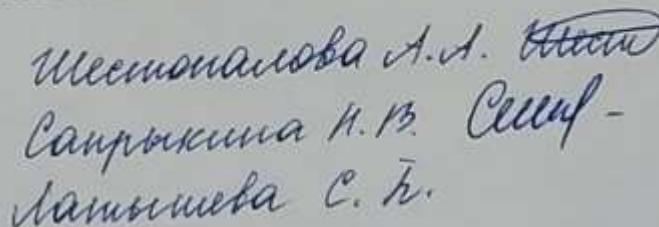 Шестопалова А.А.
Сапрыкина Н.В.
Латышева С.Б.